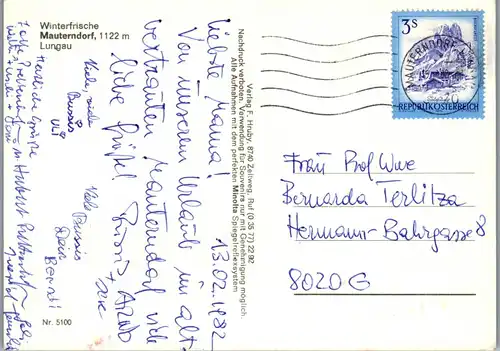 Winterfrische
Mauterndorf, 1122 m
Lungau
Nachdruck verboten. Verwendung für Souvenirs nur mit Genehmigung möglich.
Verlag F. Hruby, 8740 Zeltweg, Ruf (0 35 77) 22 92
Alle Aufnahmen mit dem perfekten Minolta Spiegelreflexsystem
3S
REPUBLIK ÖSTERREICH
MAUTERNDORF
13.02.1982
Liebste Mama!
Von unserem Urlaub im alt-
vertrauten Mauterndorf viele
liebe Grüße! Bussis
ARNO
Viele, viele
Bussis
ULI
Viele Bussis
Dein
Bernd!
Herzliche Grüße
Frau Prof Wwe
Bernarda Terlitza
Hermann-Bahrgasse 8
8020 G
Nr. 5100